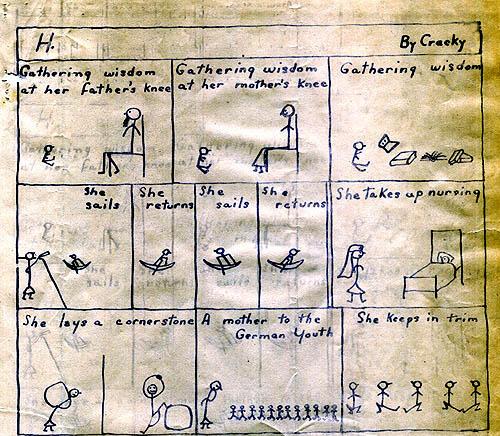 H.
By Craeky
Gathering wisdom
at her father's knee
Gathering wisdom
at her mother's knee
Gathering wisdom
She
sails
She
returns
She
sails
She
returns
She takes up nursing
She lays a cornerstone
A mother to the
German Youth
She keeps in trim